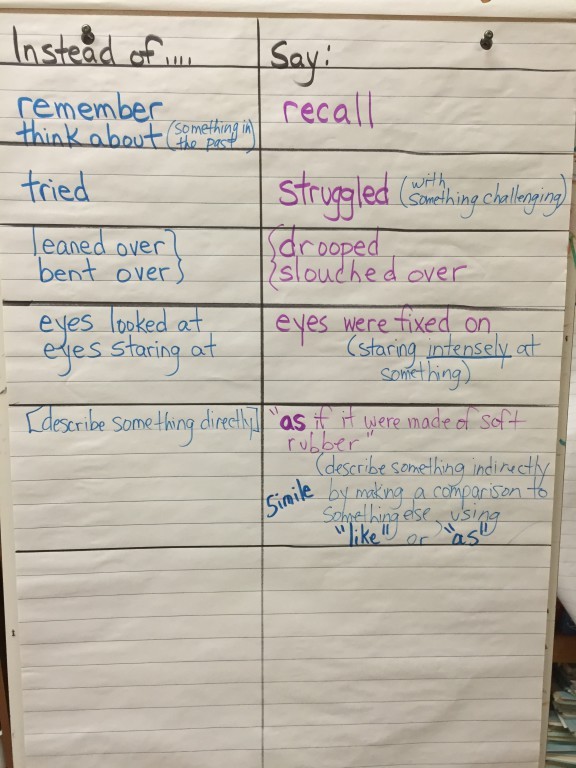 Instead of....
Say:
remember
think about (something in
the past)
recall
tried
struggled (with
something challenging)
leaned over}
bent over}
{drooped
{slouched over
eyes looked at
eyes staring at
eyes were fixed on
(staring intensely at
something)
[describe something directly]
"as if it were made of soft
rubber"
(describe something indirectly
Simile by making a comparison to
something else using
"like" or "as"